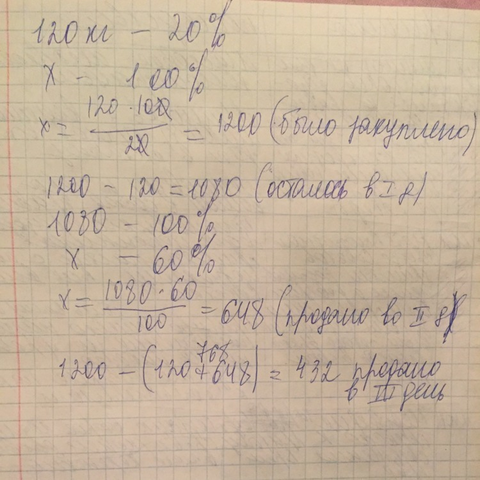 120 кг – 20%
x – 100%
x = 120 · 100 / 20 = 1200 (было закуплено)
1200 – 120 = 1080 (осталось в I д)
1080 – 100%
x – 60%
x = 1080 · 60 / 100 = 648 (продано во II д)
768
1200 – (120 + 648) = 432 продано
в III день